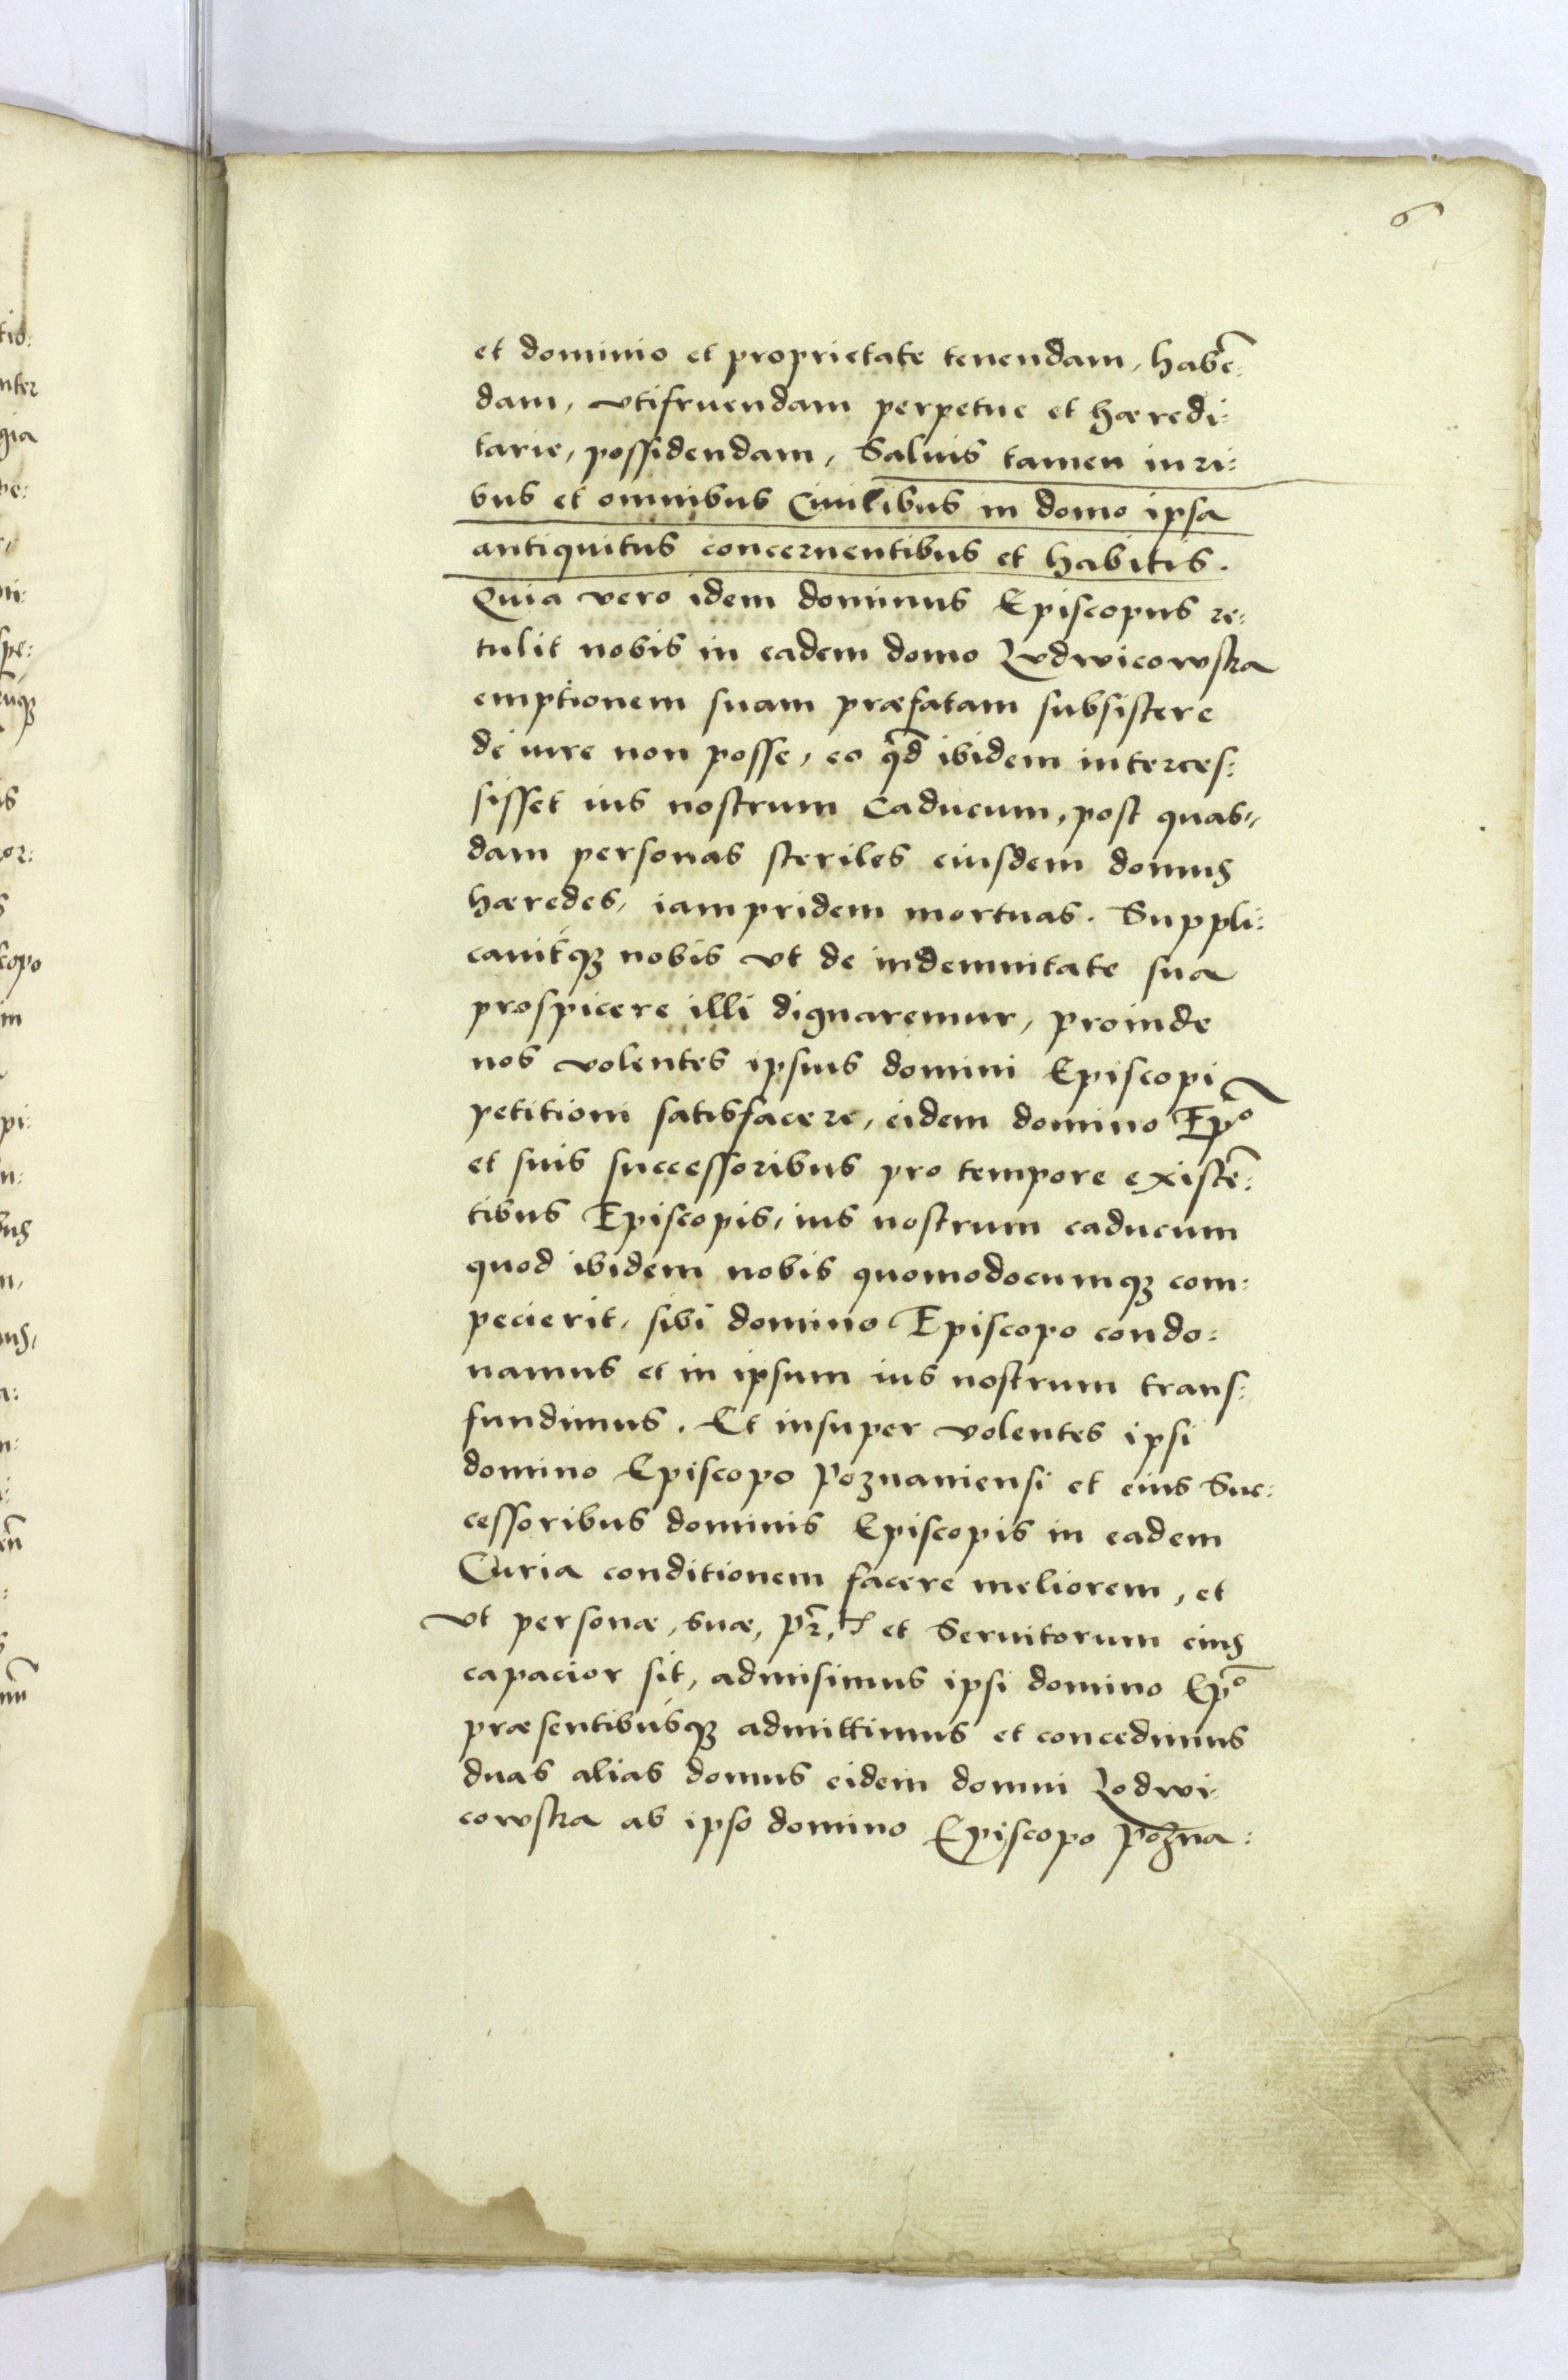 6
et dominio et proprietate tenendam, habē:
dam, vtifruendam perpetue et hæredi:
tarie, possidendam, Saluis tamen iuri:
bus et omnibus Ciuilibus in domo ipsa
antiquitus concernentibus et habitis.
Quia vero idem dominus Episcopus re:
tulit nobis in eadem domo Lvdwicowska
emptionem suam præfatam subsistere
de iure non posse, eo qd̄ ibidem interces:
sisset ius nostrum Caducum, post quas,,
dam personas steriles eiusdem domus
hæredes, iampridem mortuas. Suppli:
cauitqꝫ nobis vt de indemnitate sua
prospicere illi dignaremur, proinde
nos volentes ipsius domini Episcopi
petitioni satisfacere, eidem domino Ep̄o
et suis successoribus pro tempore existē:
tibus Episcopis, ius nostrum caducum
quod ibidem nobis quomodocumqꝫ com:
pecierit, sibi domino Episcopo condo:
namus et in ipsum ius nostrum trans:
fundimus. Et insuper volentes ipsi
domino Episcopo Poznaniensi et eius Suc:
cessoribus dominis Episcopis in eadem
Curia conditionem facere meliorem, et
vt personæ, suæ, et Seruitorum eius
capacior sit, admisimus ipsi domino Ep̄o
præsentibusqꝫ admittimus et concedimus
duas alias domus eidem domui Lodwi:
cowska ab ipso domino Episcopo Pozna:
tio:
nter
gia
copo